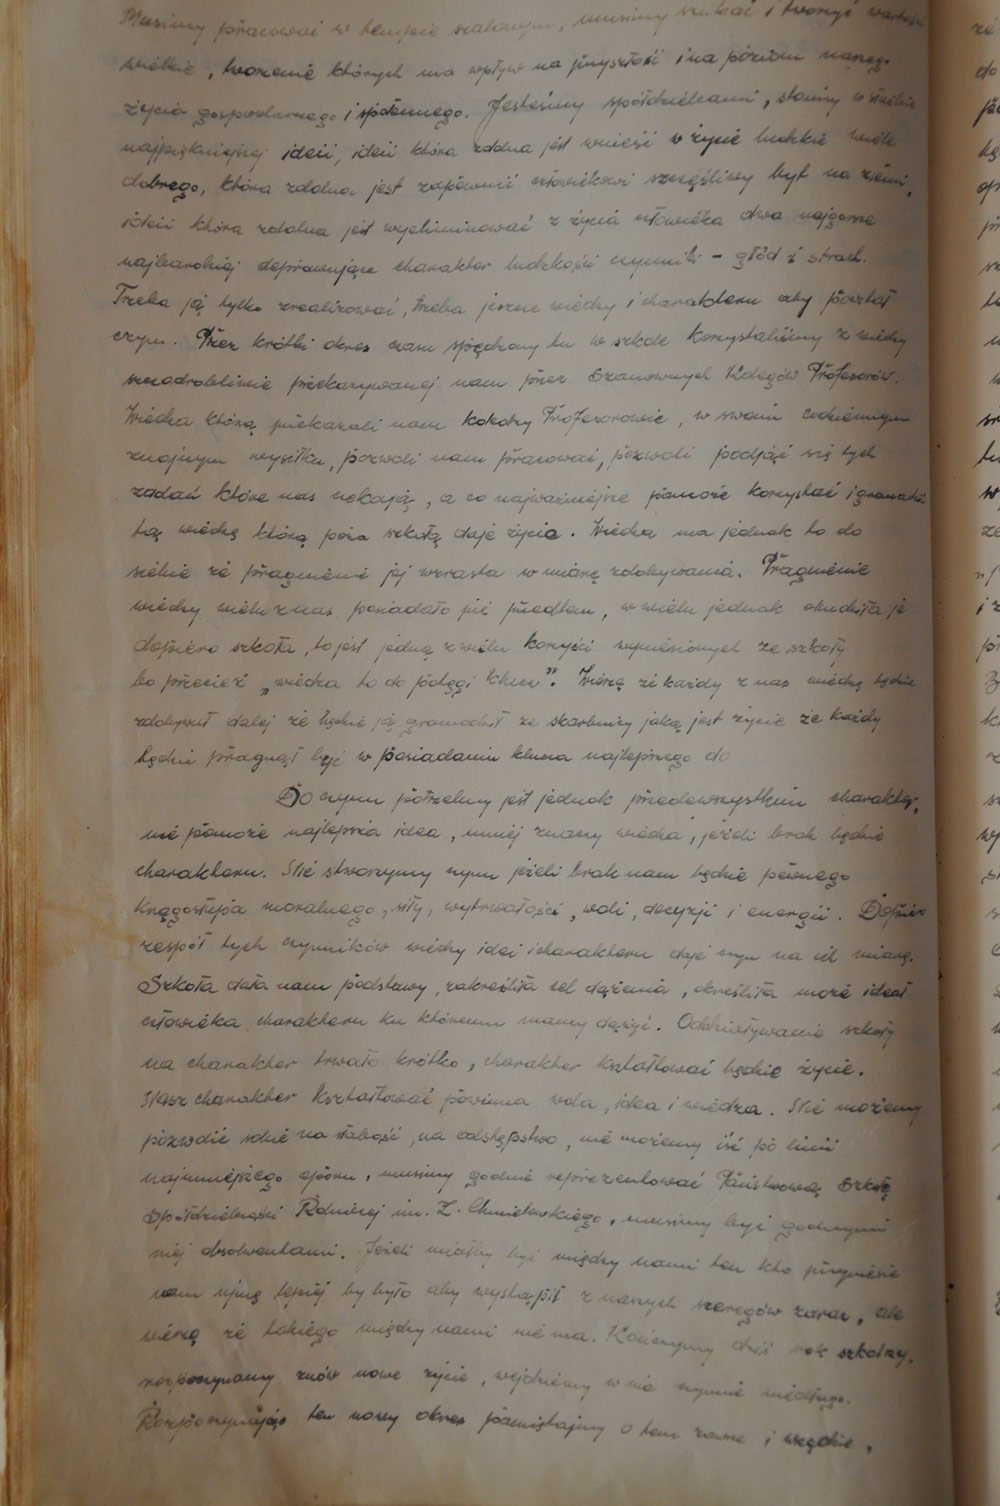 Musimy pracować w tempie szalonym, musimy szukać i tworzyć wartości
wielkie, tworzenie których ma wpływ na przyszłość i na poziom naszego
życia gospodarczego i społecznego. Jesteśmy spółdzielcami, stoimy w służbie
najpiękniejszej ideii, ideii która zdolna jest wnieść w życie ludzkie wiele
dobrego, która zdolna jest zapewnić człowiekowi szczęśliwy byt na ziemi,
ideii która zdolna jest wyeliminować z życia człowieka dwa najgorsze
najbardziej deprawujące charakter ludzkości czynniki – głód i strach.
Trzeba ją tylko zrealizować, trzeba jeszcze wiedzy i charakteru aby powstał
czyn. Przez krótki okres czasu spędzony tu w szkole korzystaliśmy z wiedzy
szczodrobliwie przekazywanej nam przez Szanownych Kolegów Profesorów.
Wiedza którą przekazali nam Koledzy Profesorowie, w swoim codziennym
znojnym wysiłku, pozwoli nam pracować, pozwoli podjąć się tych
zadań które nas czekają, a co najważniejsze pomoże korzystać i gromadzić
tą wiedzę którą poza szkołą daje życie. Wiedza ma jednak to do
siebie że pragnienie jej wzrasta w miarę zdobywania. Pragnienie
wiedzy wielu z nas posiadało już przedtem, w wielu jednak obudziła je
dopiero szkoła, to jest jedną z wielu korzyści wyniesionych ze szkoły
bo przecież „wiedza to do potęgi klucz". Wierzę że każdy z nas wiedzę będzie
zdobywał dalej że będzie ją gromadził ze skarbnicy jaką jest życie że każdy
będzie pragnął być w posiadaniu klucza najlepszego do
Do czynu potrzebny jest jednak przedewszystkim charakter,
nie pomoże najlepsza idea, mniej znaczy wiedza, jeżeli brak będzie
charakteru. Nie stworzymy czynu jeżeli brak nam będzie pewnego
kręgosłupa moralnego, siły, wytrwałości, woli, decyzji i energii. Dopiero
zespół tych czynników wiedzy idei i charakteru daje czyn na ich miarę.
Szkoła dała nam podstawy, zakreśliła cel dążenia, określiła może ideał
człowieka charakteru ku któremu mamy dążyć. Oddziaływanie szkoły
na charakter trwało krótko, charakter kształtować będzie życie.
Nasz charakter kształtować powinna wola, idea i wiedza. Nie możemy
pozwolić sobie na słabość, na odstępstwo, nie możemy iść po linii
najmniejszego oporu, musimy godnie reprezentować Państwową Szkołę
Spółdzielczości Rolniczej im. Z. Chmielewskiego, musimy być godnymi
niej absolwentami. Jeżeli miałby być między nami ten kto przyniesie
nam ujmę lepiej by było aby wystąpił z naszych szeregów zaraz, ale
wierzę że takiego między nami nie ma. Kończymy dziś rok szkolny,
rozpoczynamy znów nowe życie, wejdziemy w nie czynnie niedługo.
Rozpoczynając ten nowy okres pamiętajmy o tem zawsze i wszędzie,